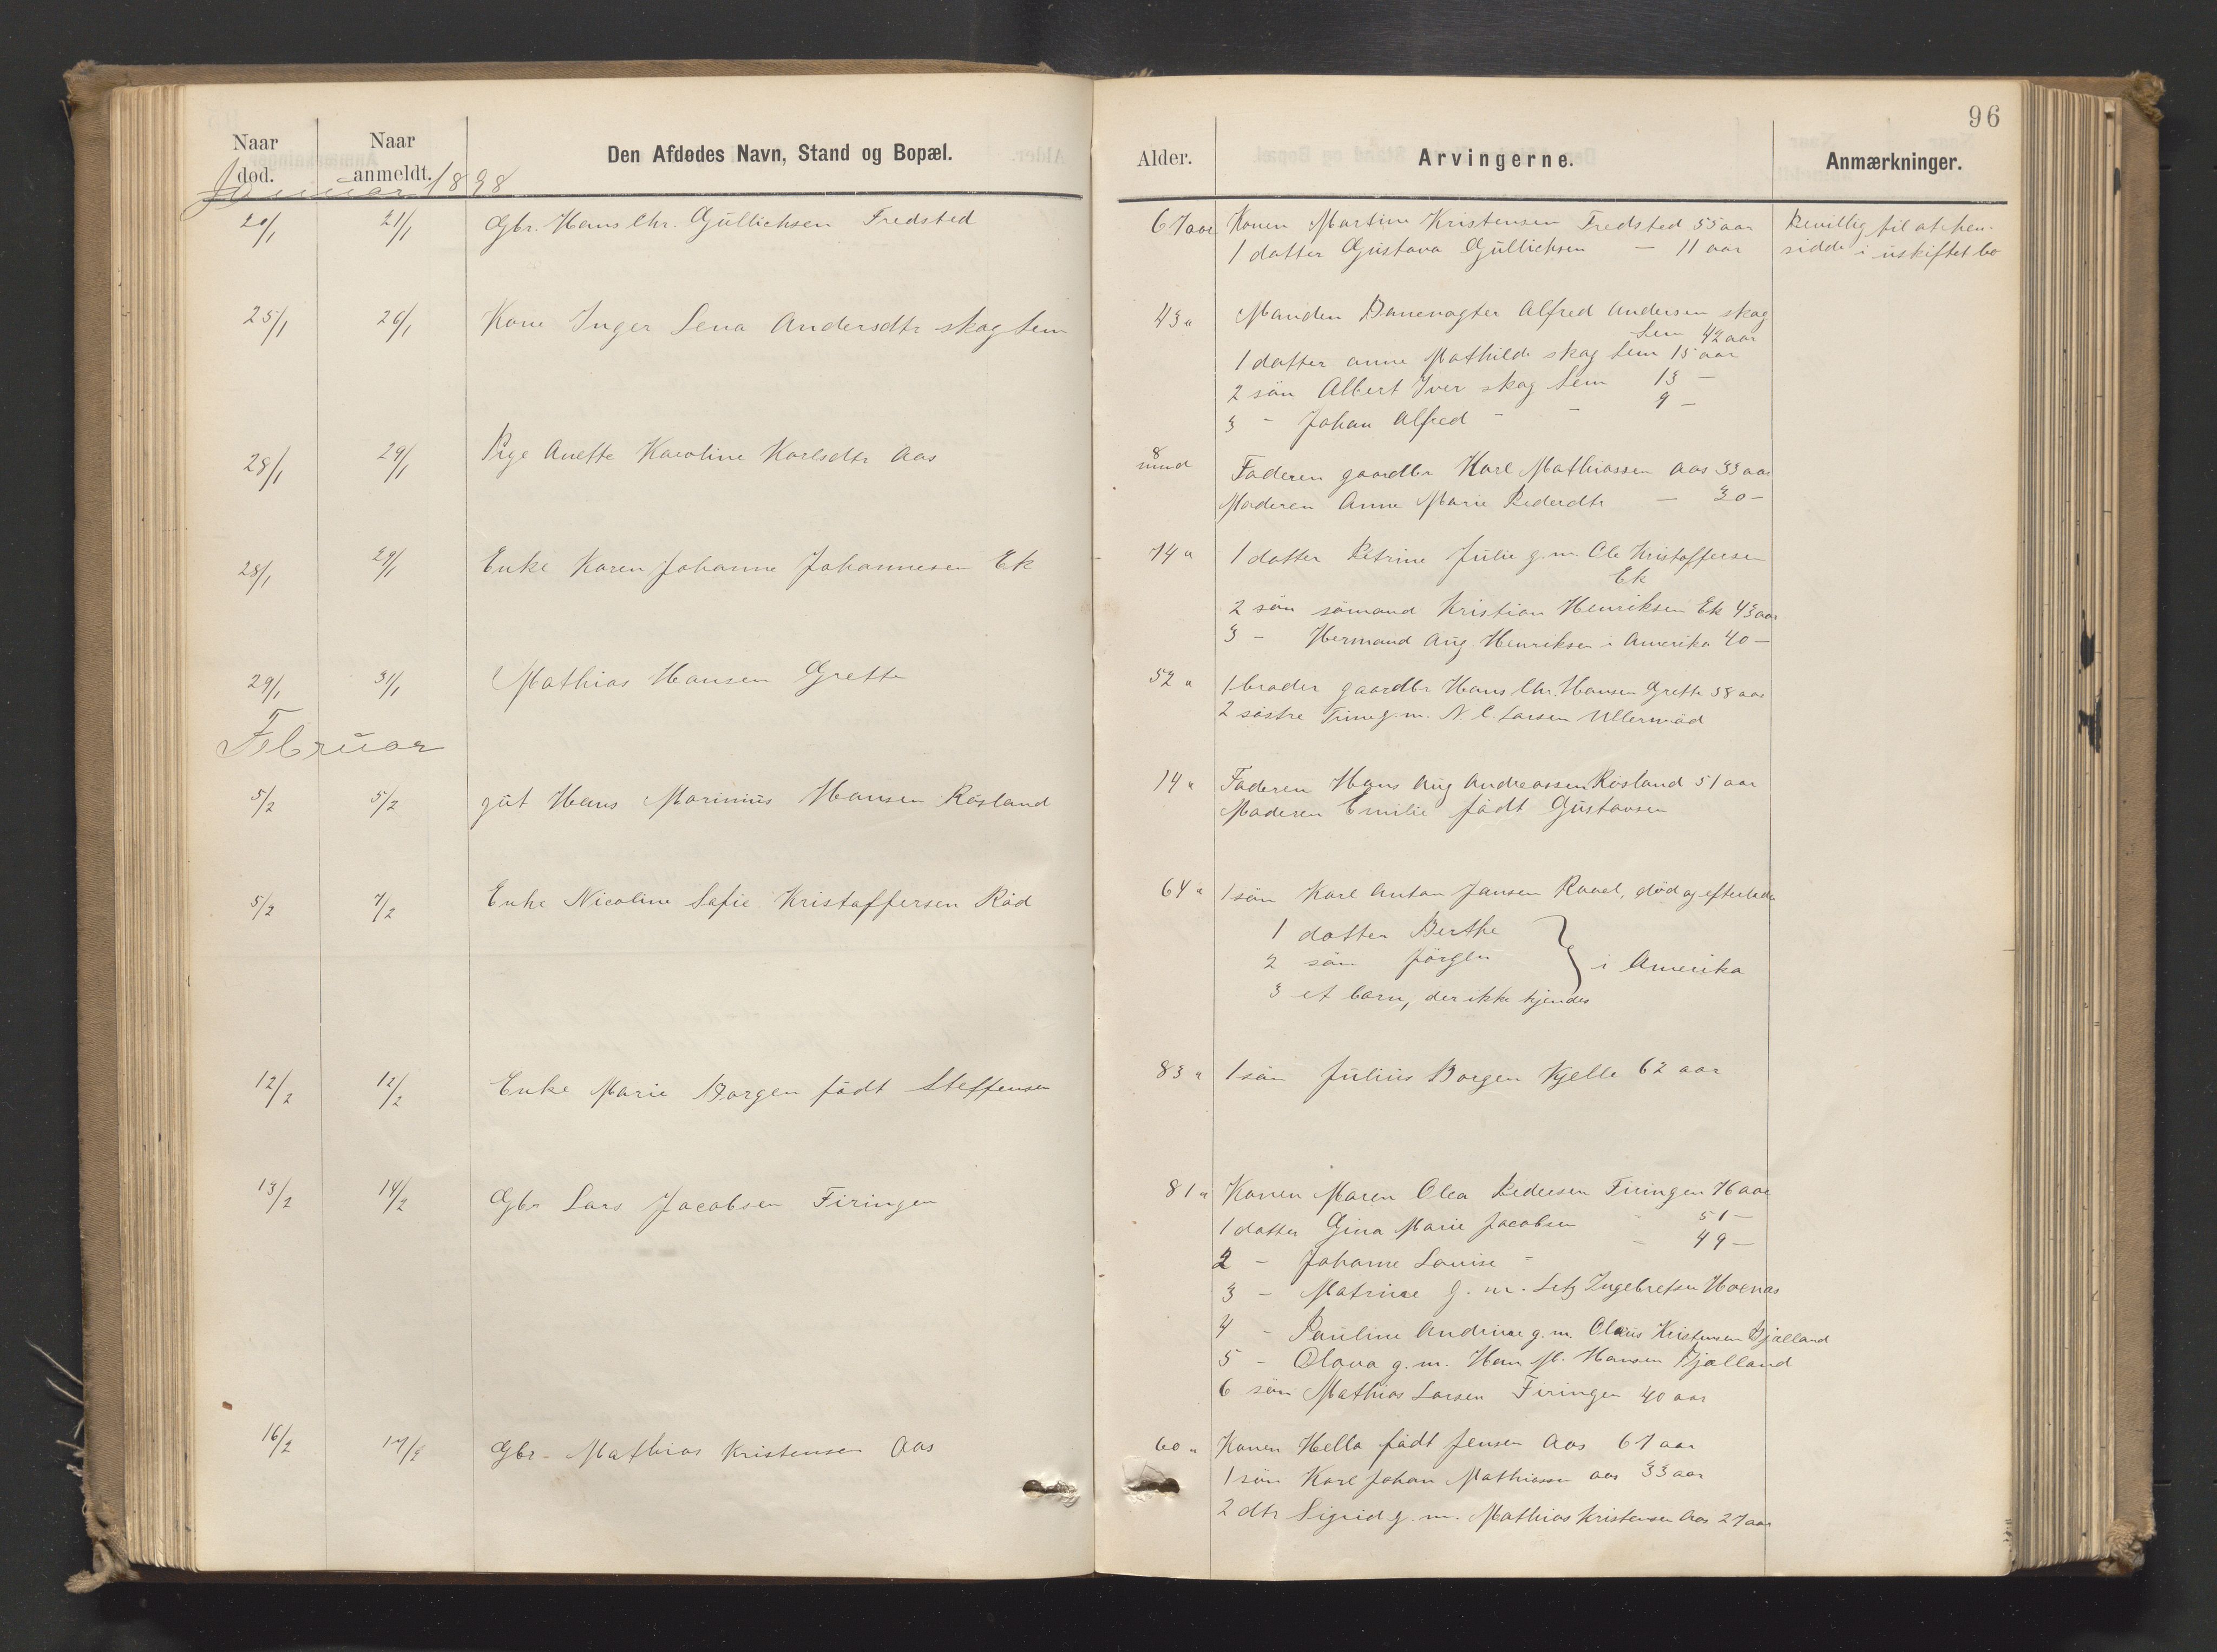 96
Naar død.
Naar anmeldt.
Den Afdødes Navn, Stand og Bopæl.
Alder.
Arvingerne.
Anmærkninger.
Januar 1898
20/1 21/1 Gbr. Hans Chr. Gullichsen Fredsted 67 aar Konen Martine Kristensen Fredsted 55 aar Bevillig til at hen-
1 datter Gustava Gullichsen — 11 aar sidde i uskiftet bo
25/1 26/1 Kone Inger Lena Andersdtr skag Sem 43 a Manden Banevogter Alfred Andersen skag
Sem 42 aar
1 datter anne Mathilde skag Sem 15 aar
2 sön Albert Iver skag Sem 13 —
3 - Johan Alfred - - 9 —
28/1 29/1 Pige Anette Karoline Karlsdtr Aas 8 mnd Faderen gaardbr Karl Mathiassen Aas 33 aar
Moderen Anne Marie Pedersdtr — 30 —
28/1 29/1 Enke Karen Johanne Johannesen Ek 74 a 1 datter Petrine Julie g.m. Ole Kristoffersen
Ek
2 sön sömand Kristian Henriksen Ek 43 aar
3 - Hermand Aug. Henriksen i Amerika 40 —
29/1 31/1 Mathias Hansen Grette 52 a 1 broder gaardbr Hans Chr. Hansen Grette 58 aar
2 söstre Trine g.m. N. C. Larsen Ulleröd
Februar
5/2 5/2 gut Hans Marinius Hansen Rösland 14 a Faderen Hans Aug Andreassen Rösland 51 aar
Moderen Emilie födt Gustavsen
5/2 7/2 Enke Nicoline Sofie Kristoffersen Röd 64 a 1 sön Karl Anton Jansen död og efterlader
1 datter Berthe
2 sön Jörgen } i Amerika
3 et barn, der ikke kjendes
12/2 12/2 Enke Marie Borgen födt Steffensen 83 a 1 sön Julius Borgen Kjelle 62 aar
13/2 14/2 Gbr Lars Jacobsen Firingen 81 a Konen Maren Olea Pedersen Firingen aar
1 datter Gina Marie Jacobsen - 51 —
2 - Johanne Louise - - 49 —
3 - Matrine g.m. Ingebretsen
4 - Pauline Andrine g.m. Olaus Kristensen Bjölland
5 - Olava g.m. Hans M. Hansen Bjölland
6 sön Mathias Larsen Firingen 40 aar
16/2 17/2 Gbr. Mathias Kristensen Aas 60 a Konen Hella födt Jensen Aas 61 aar
1 sön Karl Johan Mathiassen aas 33 aar
2 dtr Sigrid g.m. Mathias Kristensen Aas 27 aar